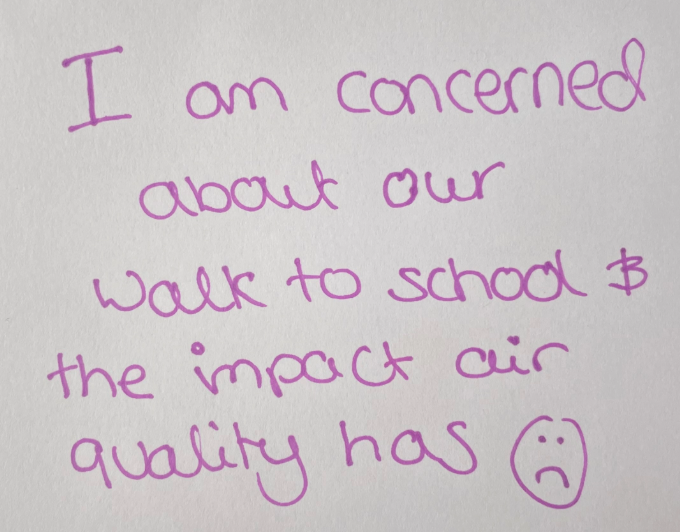 I am concerned
about our
walk to school &
the impact air
quality has ☹